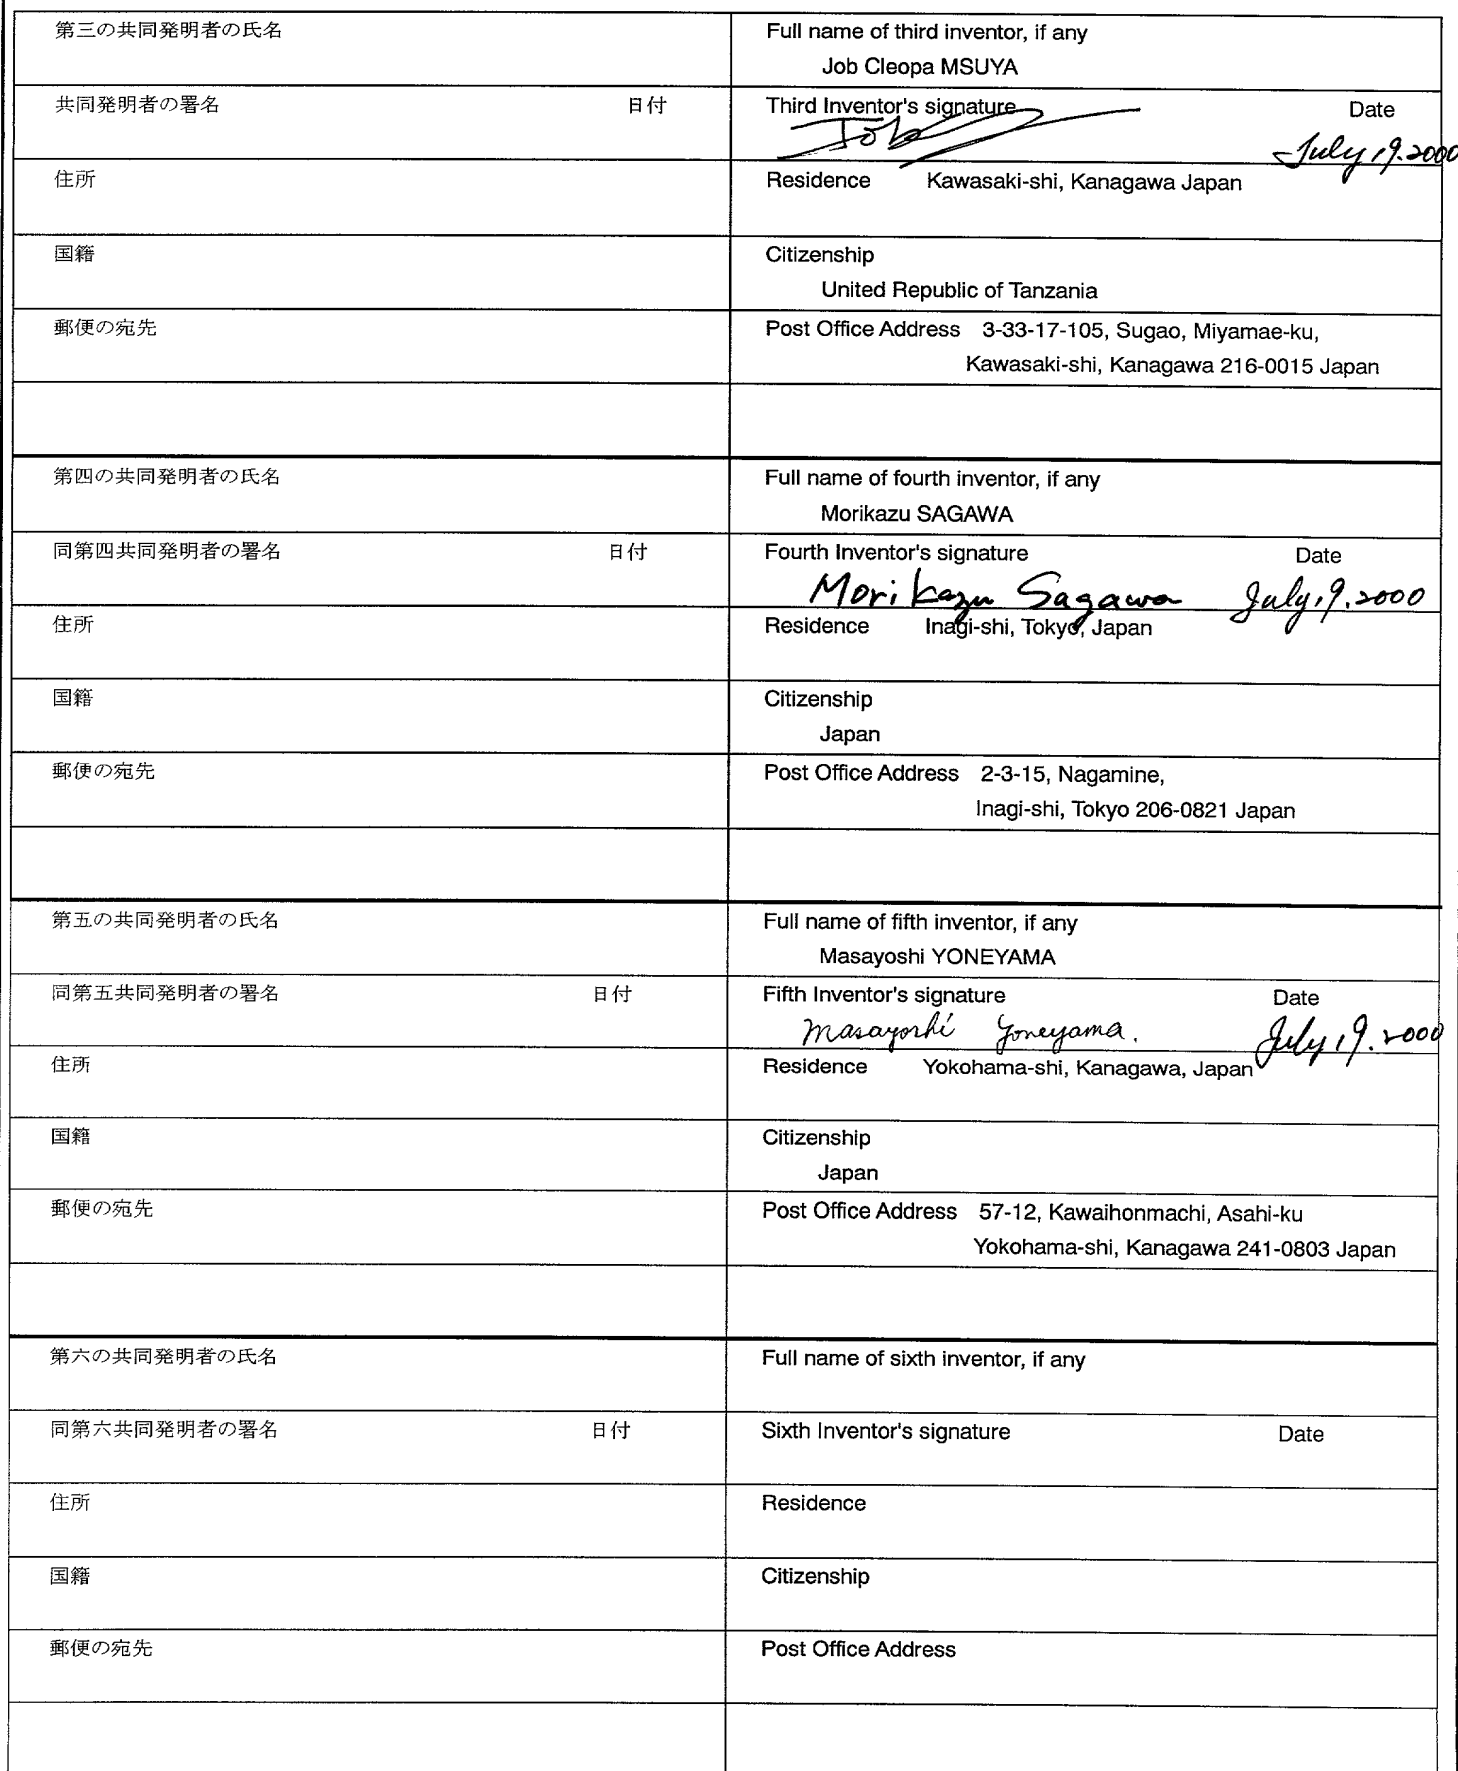 第三の共同発明者の氏名
Full name of third inventor, if any
Job Cleopa MSUYA
共同発明者の署名 日付
Third Inventor's signature Date
Job
July, 9. 2000
住所
Residence Kawasaki-shi, Kanagawa Japan
国籍
Citizenship
United Republic of Tanzania
郵便の宛先
Post Office Address 3-33-17-105, Sugao, Miyamae-ku,
Kawasaki-shi, Kanagawa 216-0015 Japan
第四の共同発明者の氏名
Full name of fourth inventor, if any
Morikazu SAGAWA
同第四共同発明者の署名 日付
Fourth Inventor's signature Date
Morikazu Sagawa July, 9. 2000
住所
Residence Inagi-shi, Tokyo, Japan
国籍
Citizenship
Japan
郵便の宛先
Post Office Address 2-3-15, Nagamine,
Inagi-shi, Tokyo 206-0821 Japan
第五の共同発明者の氏名
Full name of fifth inventor, if any
Masayoshi YONEYAMA
同第五共同発明者の署名 日付
Fifth Inventor's signature Date
Masayoshi Yoneyama. July, 9. 2000
住所
Residence Yokohama-shi, Kanagawa, Japan
国籍
Citizenship
Japan
郵便の宛先
Post Office Address 57-12, Kawaihonmachi, Asahi-ku
Yokohama-shi, Kanagawa 241-0803 Japan
第六の共同発明者の氏名
Full name of sixth inventor, if any
同第六共同発明者の署名 日付
Sixth Inventor's signature Date
住所
Residence
国籍
Citizenship
郵便の宛先
Post Office Address